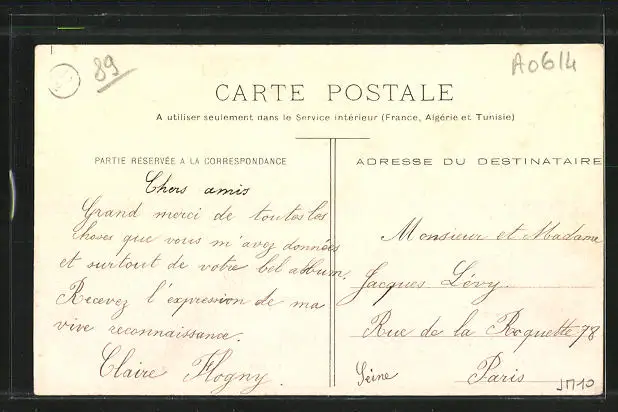 89
A0614
CARTE POSTALE
A utiliser seulement dans le Service intérieur (France, Algérie et Tunisie)
PARTIE RÉSERVÉE A LA CORRESPONDANCE
Chers amis
Grand merci de toutes les
choses que vous m'avez données
et surtout de votre bel album.
Recevez l'expression de ma
vive reconnaissance.
Claire Flogny.
ADRESSE DU DESTINATAIRE
Monsieur et Madame
Jacques Lévy.
Rue de la Roquette 78
Seine Paris
JM10